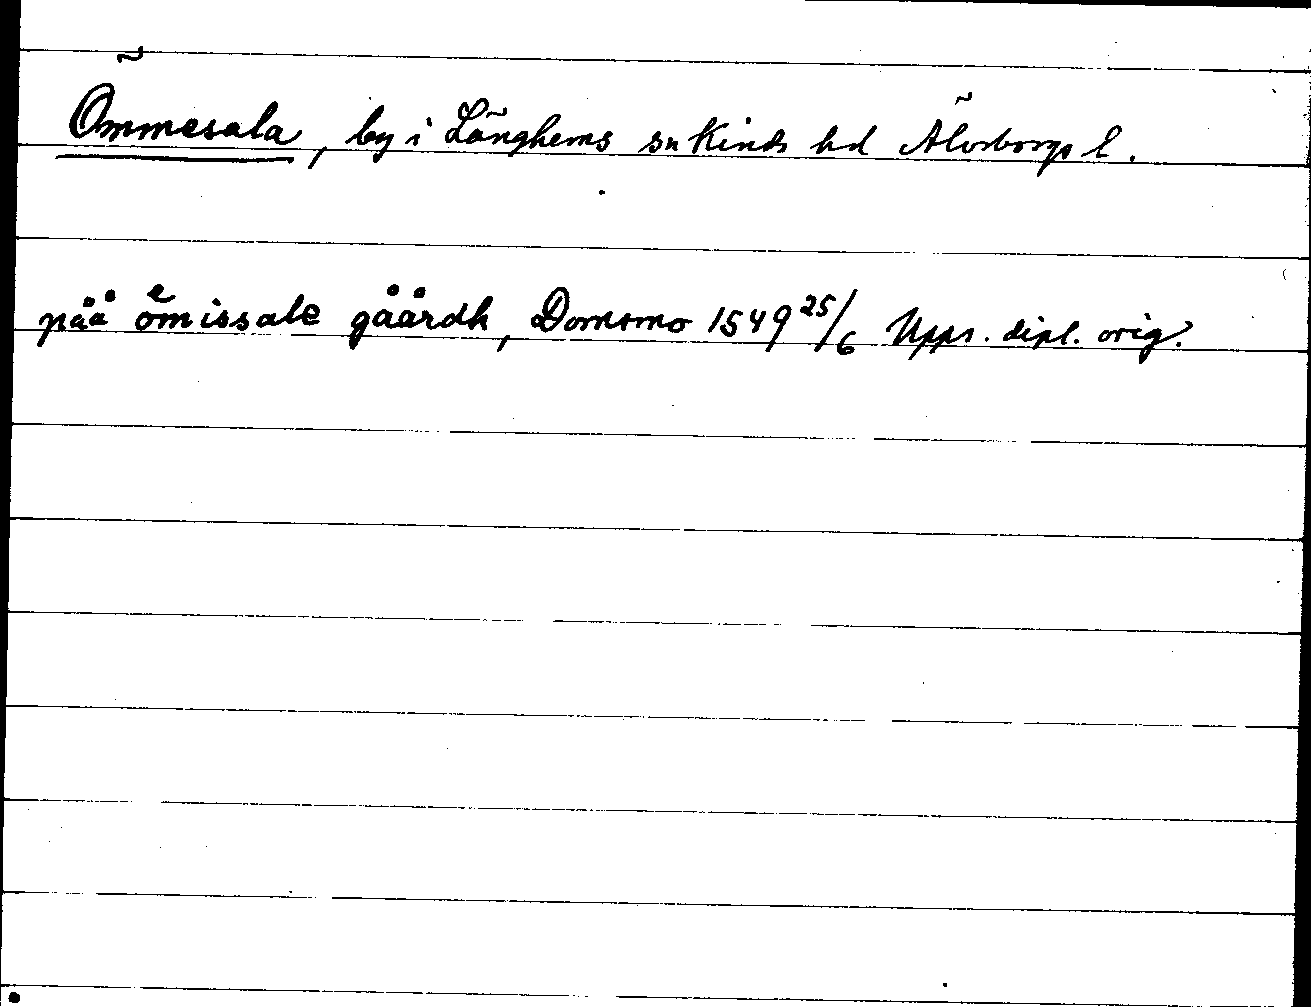 Ömmesala, by i Länghems sn Kinds hd Älvsborgs l.
på̊å oͤmissale gåårdh, Domsmo 1549 25/6 Upps. dipl. orig.